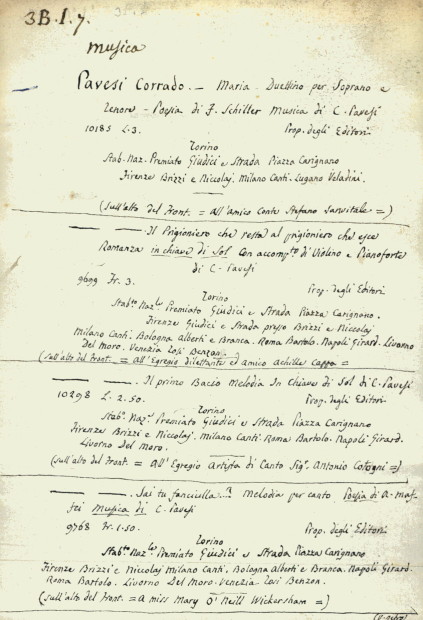 3B.I.7
musica
Pavesi Corrado. — Maria Duettino per Soprano e
Tenore - Poesia di F. Schiller Musica di C. Pavesi
10185 L. 3. Prop. degli Editori
Torino
Stab. Naz. Premiato Giudici e Strada Piazza Carignano
Firenze Brizzi e Niccolaj. Milano Canti. Lugano Veladini.
(Sull'alto del Front. = all'amico Conte Stefano Sanvitale =)
— — . Il Prigioniero che resta al prigioniero che esce
Romanza in chiave di Sol con accompto di Violino e Pianoforte
di C. Pavesi
9699 Fr. 3. Prop. degli Editori
Torino
Stabto Nazle Premiato Giudici e Strada Piazza Carignano.
Firenze Giudici e Strada presso Brizzi e Niccolaj
Milano Canti. Bologna Alberti e Branca. Roma Bartolo. Napoli Girard. Livorno
Del Moro. Venezia Losi Benzon.
(Sull'alto del Front. = all'Egregio dilettante ed amico Achille Cappa =
— — . Il primo Bacio Melodia In Chiave di Sol di C. Pavesi
10298 L. 2.50. Prop. degli Editori
Torino
Stabo Nazl Premiato Giudici e Strada Piazza Carignano
Firenze Brizzi e Niccolaj. Milano Canti. Roma Bartolo. Napoli Girard.
Livorno Del Moro.
(Sull'alto del Front. = All'Egregio Artista di Canto Sigr Antonio Cotogni =)
— — . Sai tu fanciulla..? Melodia per canto Poesia di A. Maf-
fei Musica di C. Pavesi
9768 Fr. 1.50. Prop. degli Editori
Torino
Stabto Nazle Premiato Giudici e Strada Piazza Carignano
Firenze Brizzi e Niccolaj Milano Canti. Bologna Alberti e Branca. Napoli Girard.
Roma Bartolo. Livorno Del Moro. Venezia Losi Benzon.
(Sull'alto del Front. = A miss Mary O'Neill Wickersham =)